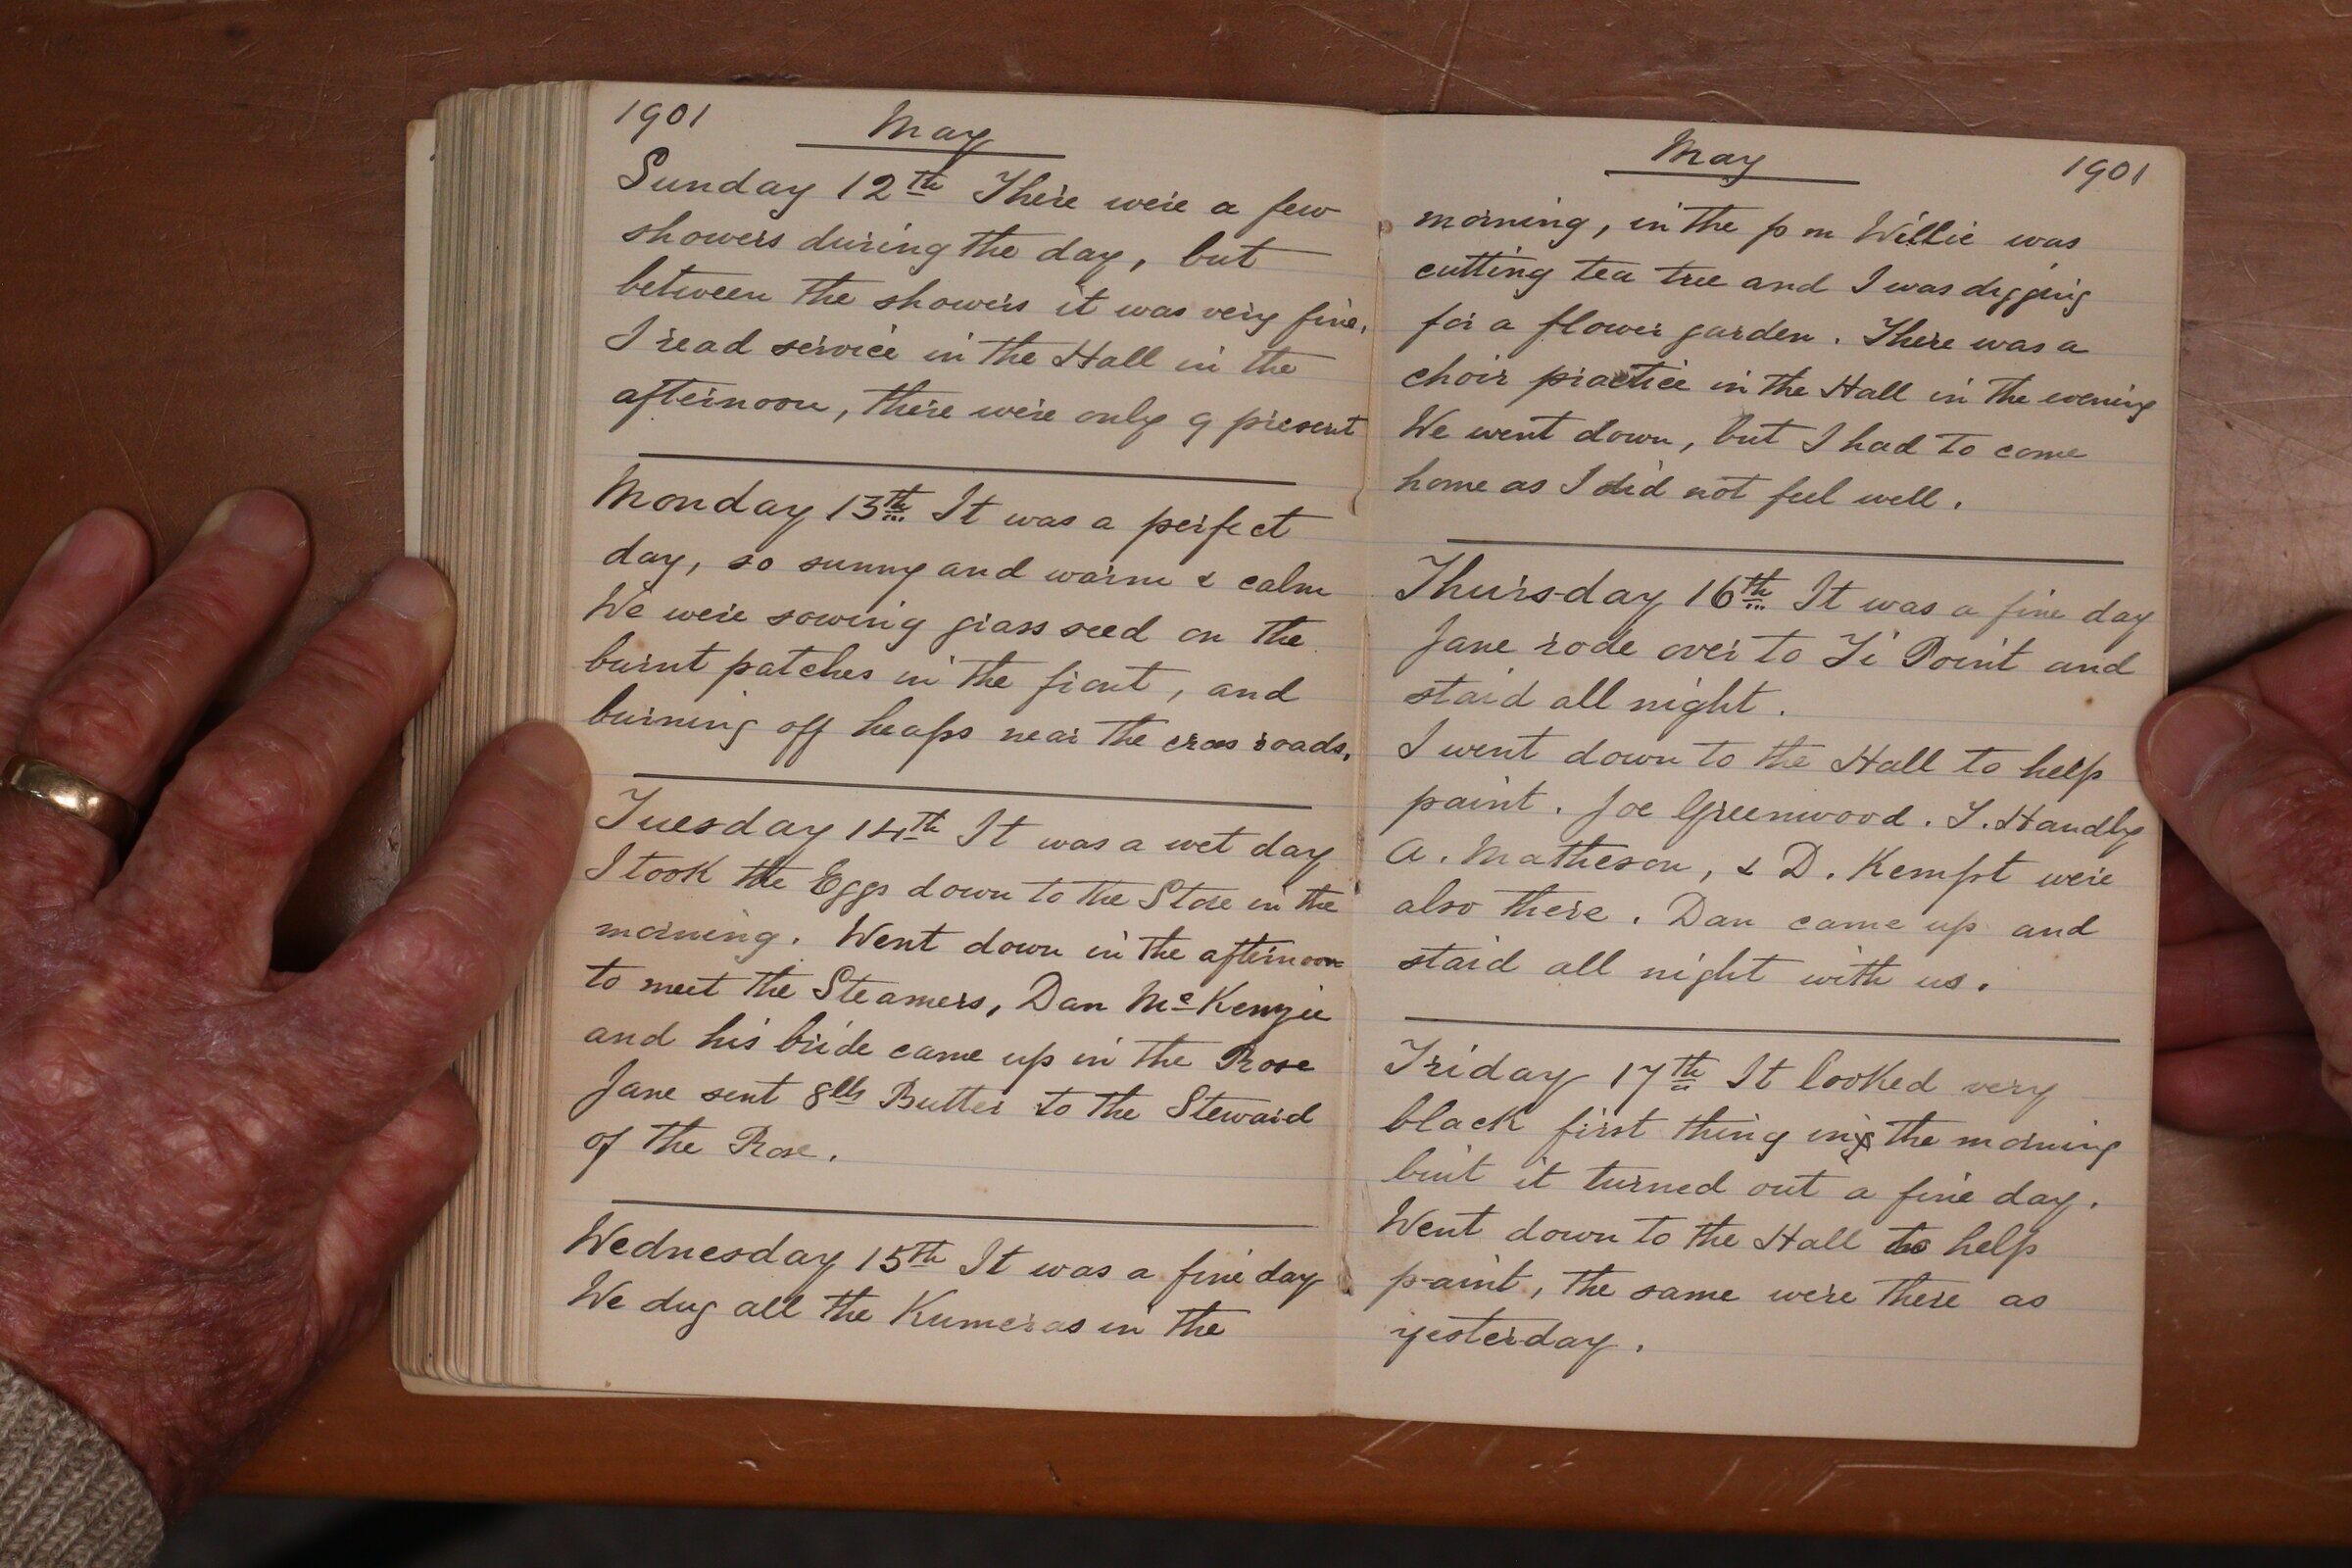 1901
May
Sunday 12th There were a few
showers during the day, but
between the showers it was very fine.
I read service in the Hall in the
afternoon, there were only 9 present
Monday 13th It was a perfect
day, so sunny and warm & calm
We were sowing grass seed on the
burnt patches in the front, and
burning off heaps near the cross roads.
Tuesday 14th It was a wet day
I took the Eggs down to the Store in the
morning. Went down in the afternoon
to meet the Steamers, Dan McKenzie
and his bride came up in the Rose
Jane sent 8lbs Butter to the Steward
of the Rose.
Wednesday 15th It was a fine day
We dug all the Kumeras in the
May
1901
morning, in the p m Willie was
cutting tea tree and I was digging
for a flower garden. There was a
choir practice in the Hall in the evening
We went down, but I had to come
home as I did not feel well.
Thursday 16th It was a fine day
Jane rode over to Ti Point and
staid all night.
I went down to the Hall to help
paint. Joe Greenwood. T. Handly
A. Matheson, & D. Kempt were
also there. Dan came up and
staid all night with us.
Friday 17th It looked very
black first thing in the morning
but it turned out a fine day.
Went down to the Hall to help
paint, the same were there as
yesterday.